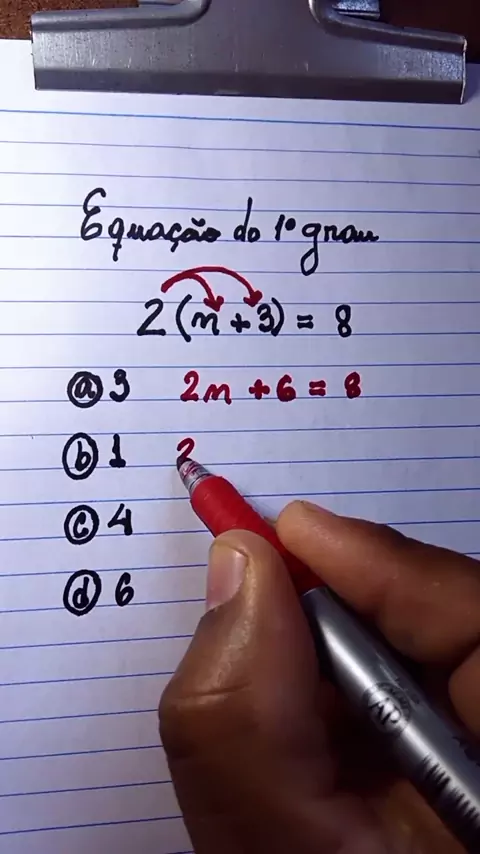 Equação do 1º grau
2(n + 3) = 8
ⓐ 3 2n + 6 = 8
ⓑ 1 2
ⓒ 4
ⓓ 6
AP